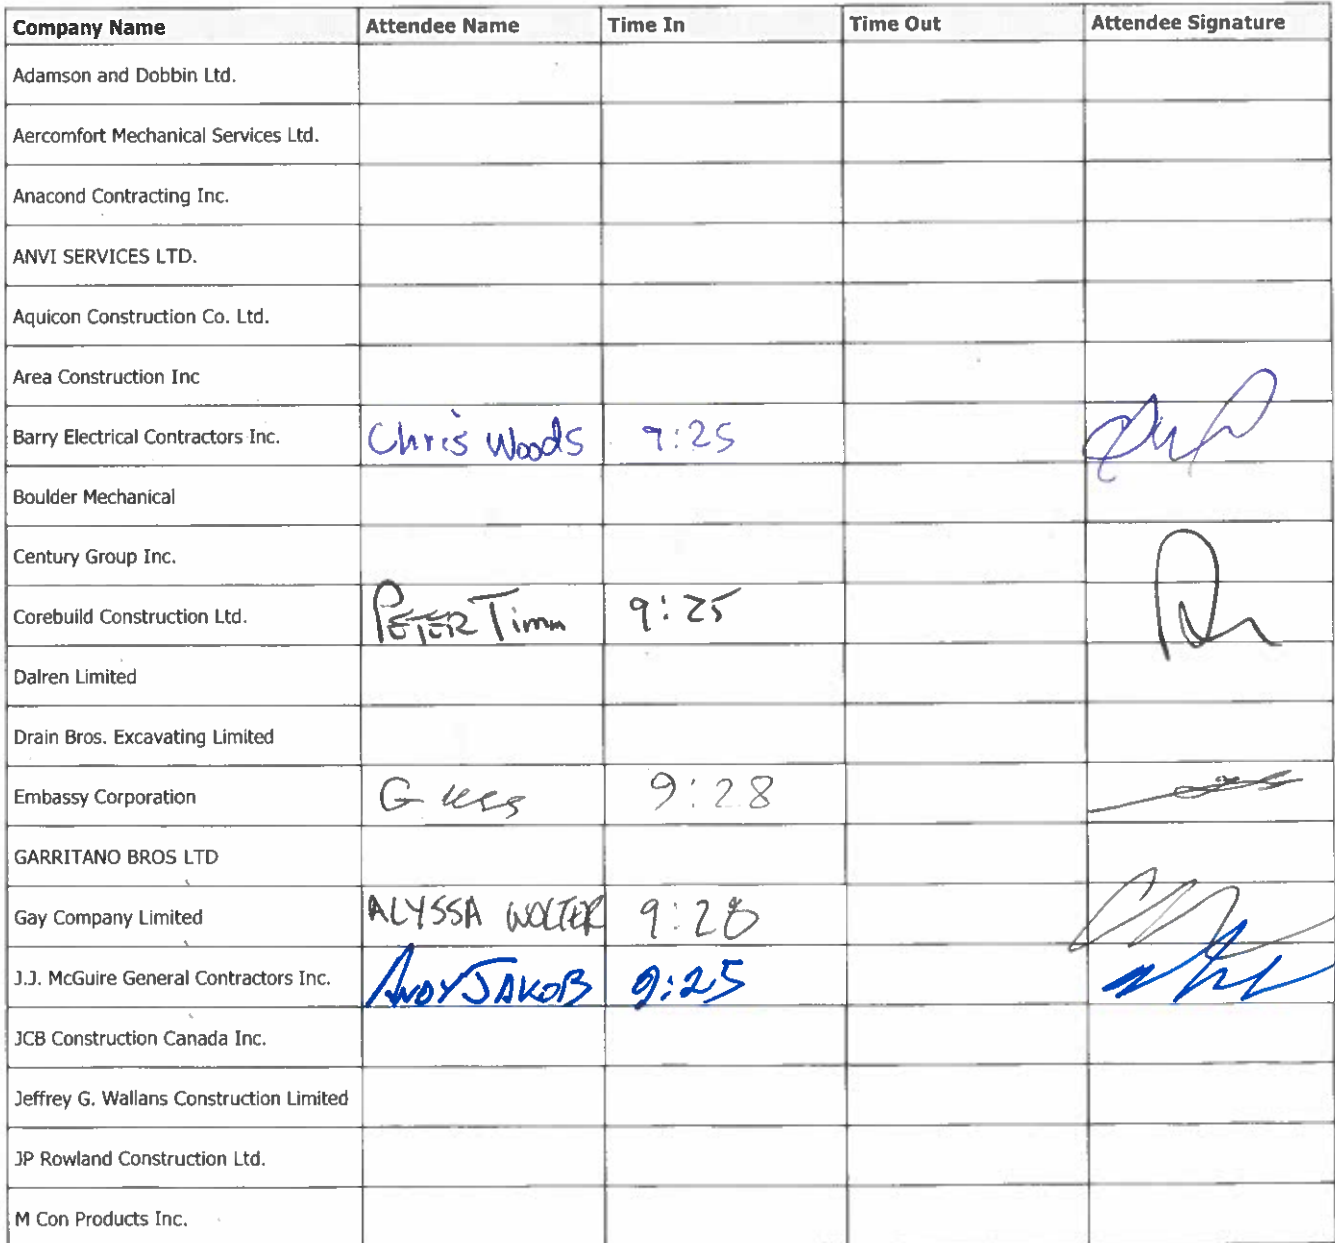 Company Name Attendee Name Time In Time Out Attendee Signature
Adamson and Dobbin Ltd.
Aercomfort Mechanical Services Ltd.
Anacond Contracting Inc.
ANVI SERVICES LTD.
Aquicon Construction Co. Ltd.
Area Construction Inc
Barry Electrical Contractors Inc. Chris Woods 9:25
Boulder Mechanical
Century Group Inc.
Corebuild Construction Ltd. PETER Timm 9:25
Dalren Limited
Drain Bros. Excavating Limited
Embassy Corporation 9:28
GARRITANO BROS LTD
Gay Company Limited ALYSSA WOLTER 9:28
J.J. McGuire General Contractors Inc. ANDY JAKOB 9:25
JCB Construction Canada Inc.
Jeffrey G. Wallans Construction Limited
JP Rowland Construction Ltd.
M Con Products Inc.